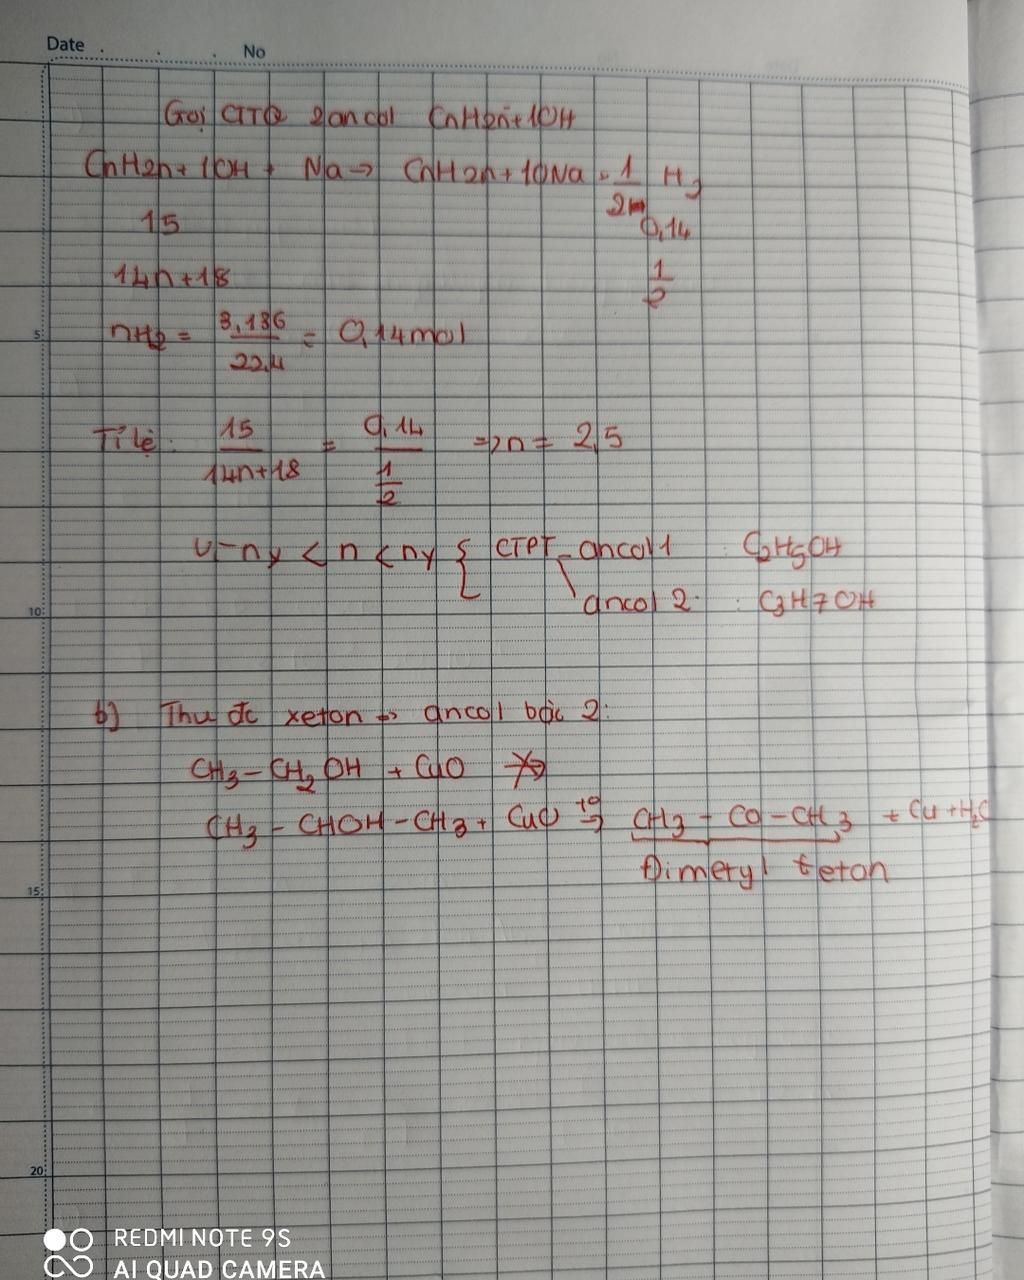 Date . . . No
Gọi CTTQ 2 ancol CnH2n+1OH
CnH2n+1OH + Na → CnH2n+1ONa + 1/2 H2
15 0,14
14n+18 1/2
5
nH2 = 3,136/22,4 = 0,14 mol
Tỉ lệ: 15/14n+18 = 0,14/1/2 => n = 2,5
< n < ny { CTPT ancol 1 : C2H5OH
10
ancol 2 : C3H7OH
b) Thu đc xeton → ancol bậc 2:
CH3-CH2OH + CuO
CH3-CHOH-CH3 + CuO t° → CH3-CO-CH3 + Cu + H2O
Đimetyl xeton
15
20
REDMI NOTE 9S
AI QUAD CAMERA